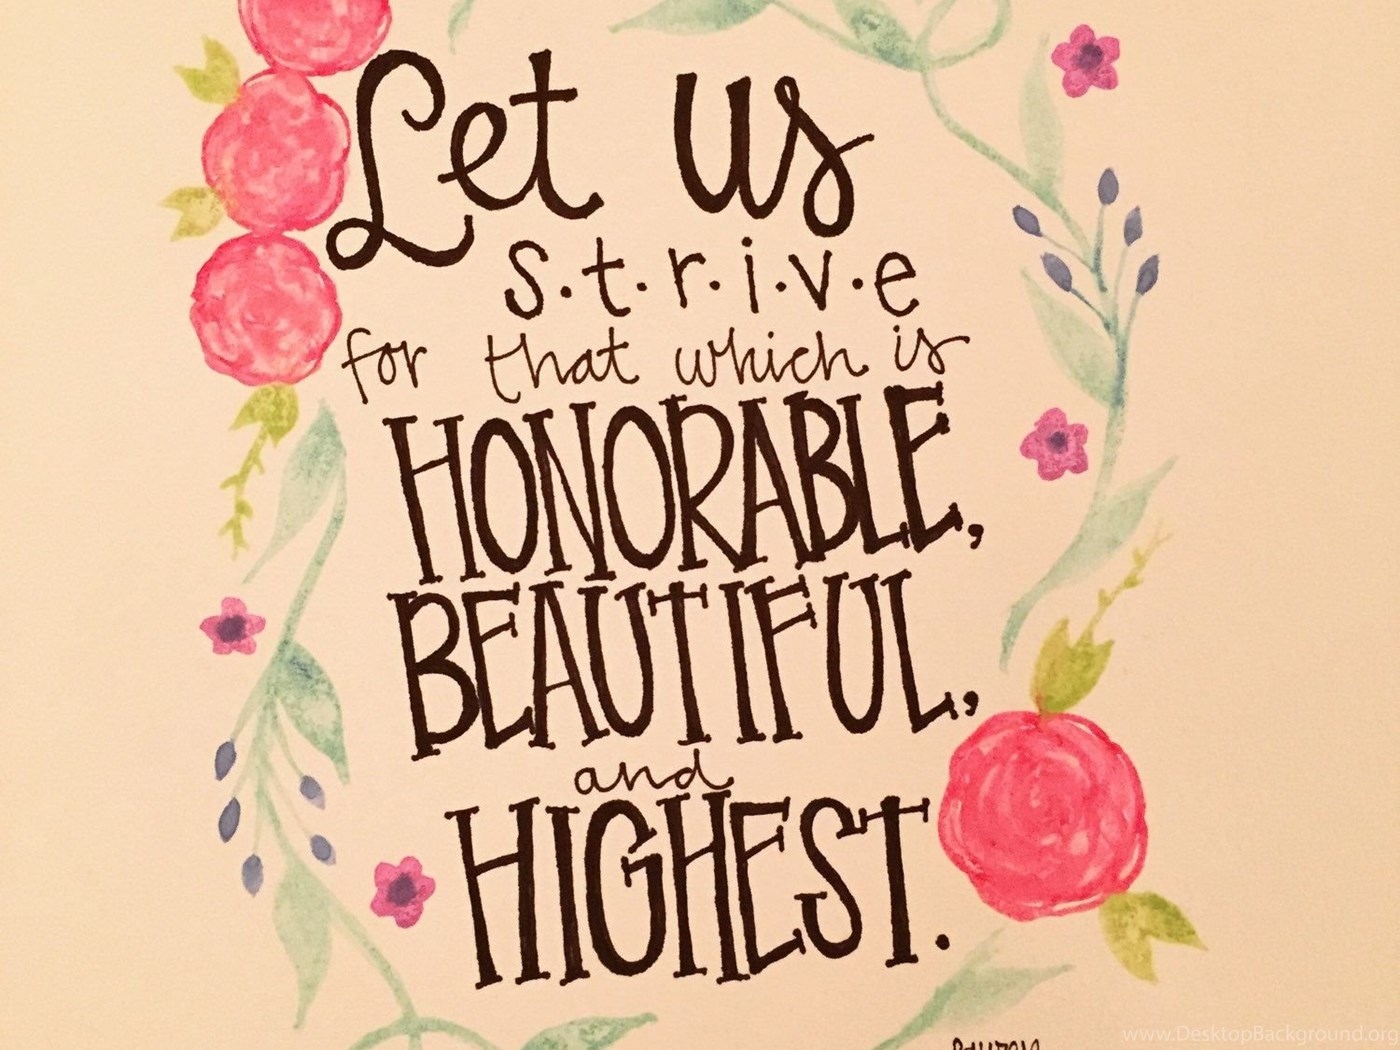 Let us
s.t.r.i.v.e
for that which is
HONORABLE,
BEAUTIFUL,
and
HIGHEST.
www.DesktopBackground.org